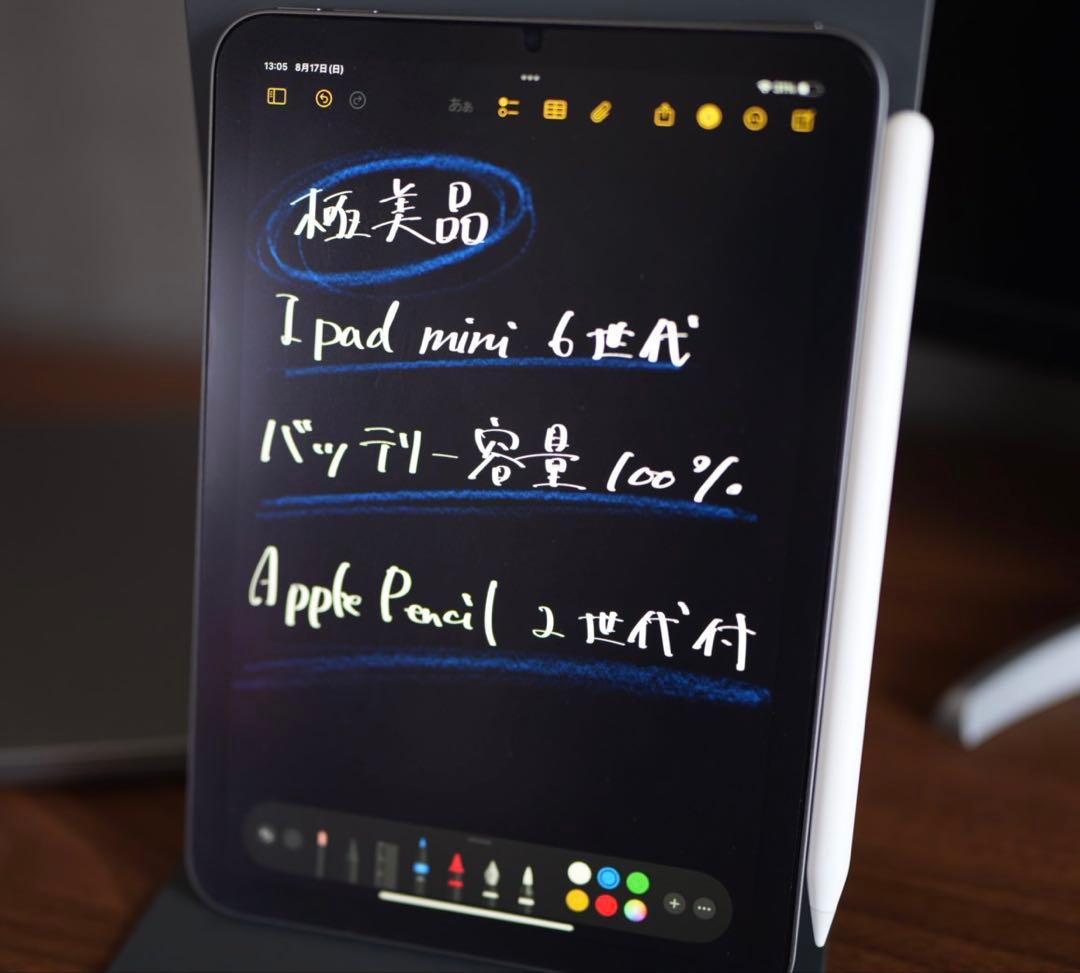 13:05 8月17日(日)
あぁ
極美品
Ipad mini 6世代
バッテリー容量100%
Apple Pencil 2世代付